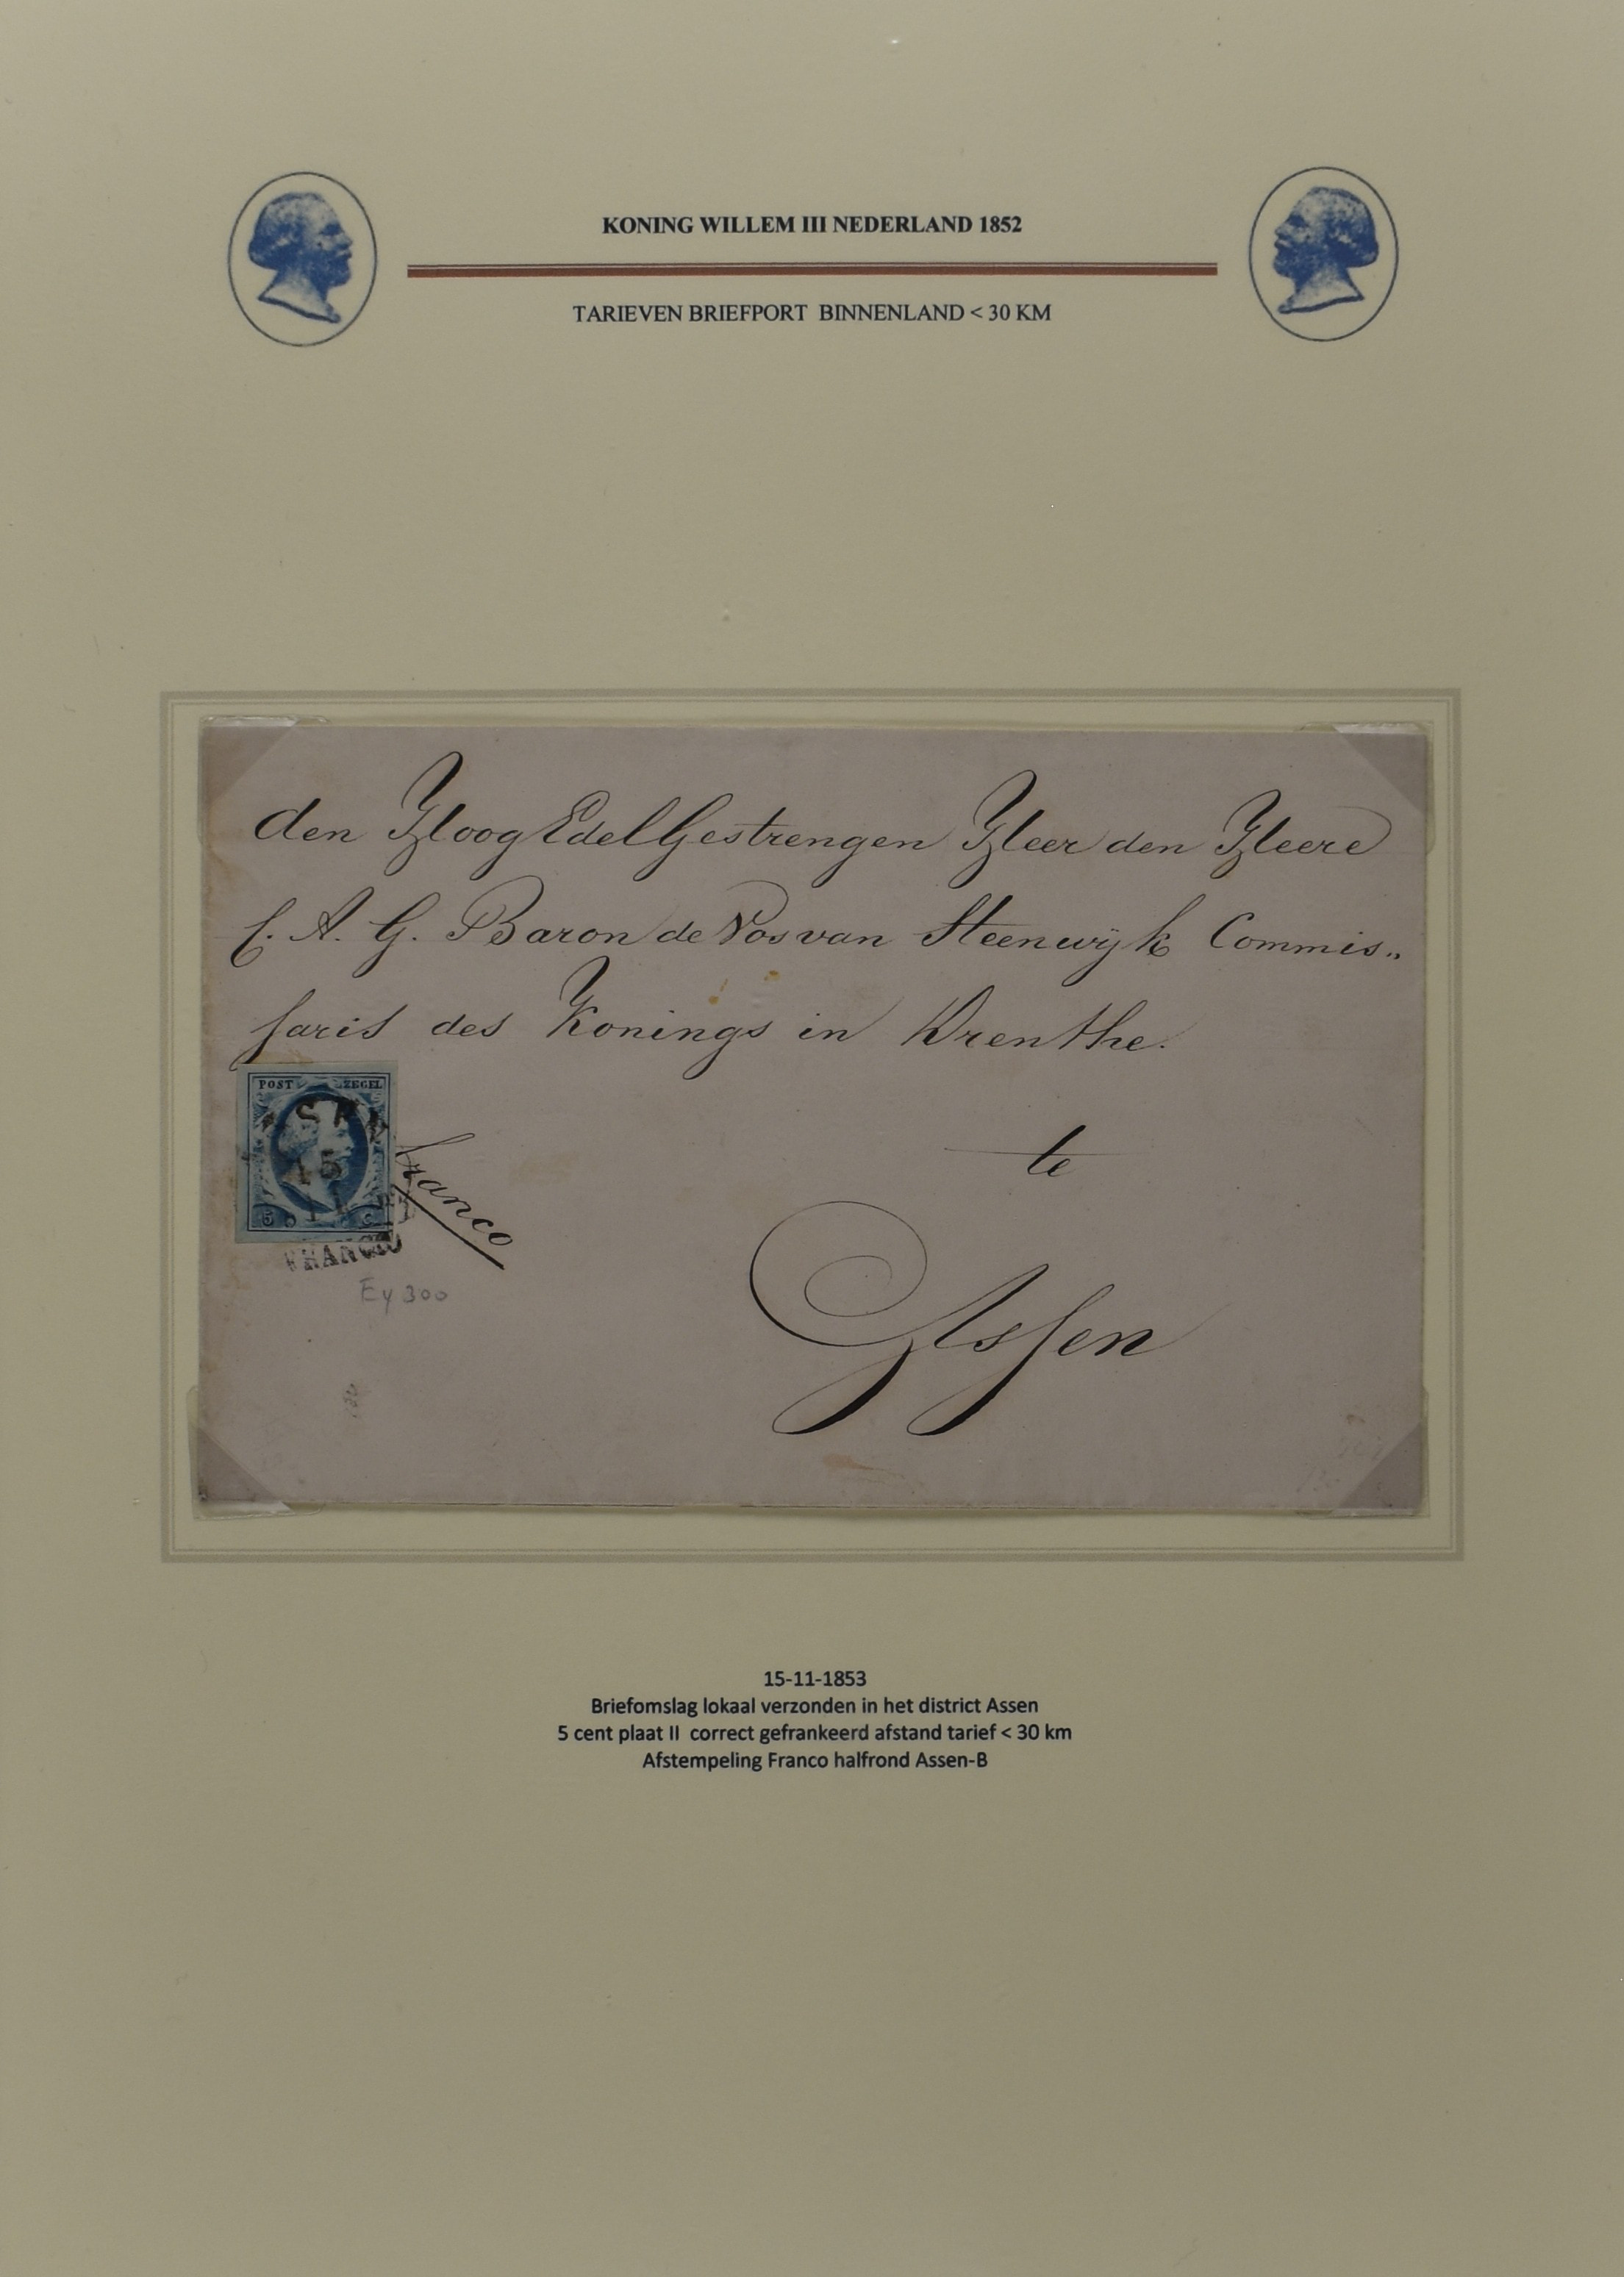 KONING WILLEM III NEDERLAND 1852
TARIEVEN BRIEFPORT BINNENLAND < 30 KM
den HoogEdelGestrengen Heer den Heere
C. A. G. Baron de Vos van Steenwijk Commis„
saris des Konings in Drenthe.
te
Assen
POST ZEGEL
ASSEN
15
11
5 C
FRANCO
franco
Ey 300
15-11-1853
Briefomslag lokaal verzonden in het district Assen
5 cent plaat II correct gefrankeerd afstand tarief < 30 km
Afstempeling Franco halfrond Assen-B